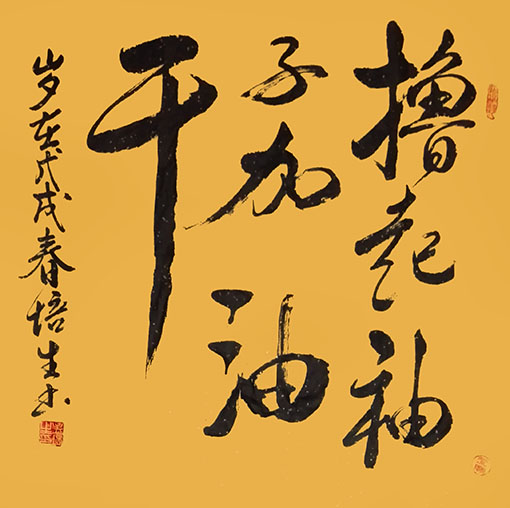 撸起袖
子加油
干
岁在戊戌春培生书